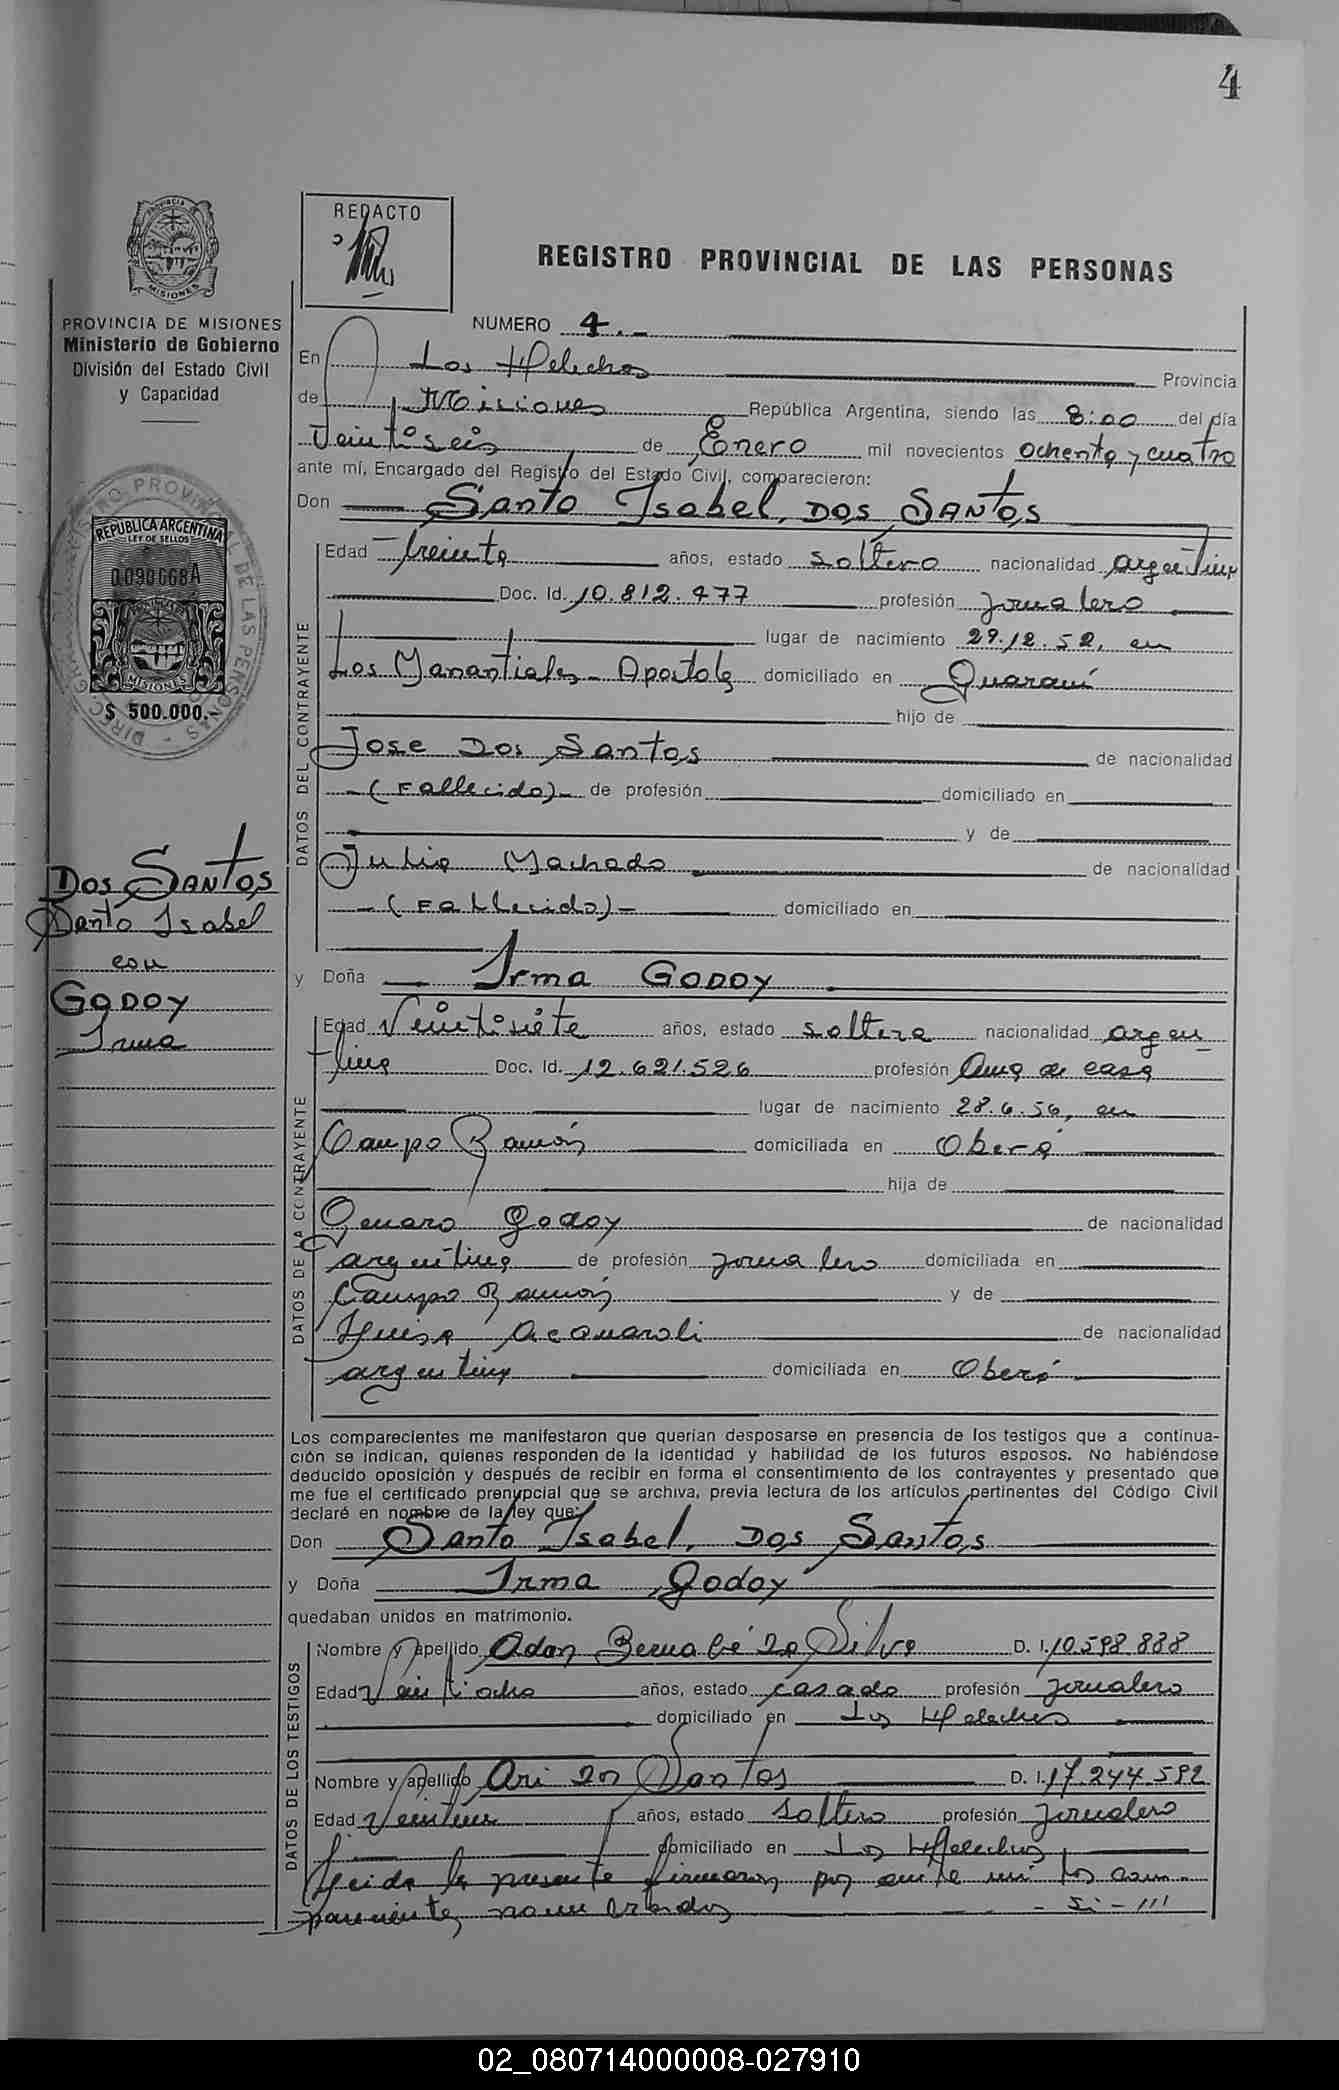 4
REDACTO
REGISTRO PROVINCIAL DE LAS PERSONAS
PROVINCIA DE MISIONES
Ministerio de Gobierno
División del Estado Civil
y Capacidad
REPUBLICA ARGENTINA
LEY DE SELLOS
0.090668A
MISIONES
$ 500.000.-
Dos Santos
Santo Isabel
con
Godoy
Irma
NUMERO 4.-
En Los Helechos Provincia
de Misiones República Argentina, siendo las 8:00 del día
Veintiseis de Enero mil novecientos ochenta y cuatro
ante mí, Encargado del Registro del Estado Civil, comparecieron:
Don Santo Isabel, Dos Santos
DATOS DEL CONTRAYENTE
Edad treinta años, estado soltero nacionalidad argentina
Doc. Id. 10.812.477 profesión jornalero
lugar de nacimiento 29.12.52, en
Los Manantiales - Apostoles domiciliado en Guaraní
hijo de
Jose Dos Santos de nacionalidad
-(Fallecido)- de profesión domiciliado en
y de
Julia Machado de nacionalidad
-(Fallecido)- domiciliado en
y Doña Irma Godoy
DATOS DE LA CONTRAYENTE
Edad Veintisiete años, estado soltera nacionalidad argen
tina Doc. Id. 12.621.526 profesión Ama de casa
lugar de nacimiento 28.6.56, en
Campo Ramón domiciliada en Oberá
hija de
Genaro Godoy de nacionalidad
argentina de profesión jornalero domiciliada en
Campo Ramón y de
Luisa Acquaroli de nacionalidad
argentina domiciliada en Oberá
Los comparecientes me manifestaron que querían desposarse en presencia de los testigos que a continua-
ción se indican, quienes responden de la identidad y habilidad de los futuros esposos. No habiéndose
deducido oposición y después de recibir en forma el consentimiento de los contrayentes y presentado que
me fue el certificado prenupcial que se archiva, previa lectura de los artículos pertinentes del Código Civil
declaré en nombre de la ley que:
Don Santo Isabel, Dos Santos
y Doña Irma Godoy
quedaban unidos en matrimonio.
DATOS DE LOS TESTIGOS
Nombre y apellido Adan Bernabé Da Silva D. I. 10.598.888
Edad Veintiocho años, estado casado profesión jornalero
domiciliado en Los Helechos
Nombre y apellido Ari Dos Santos D. I. 17.244.592
Edad Veintiun años, estado soltero profesión jornalero
domiciliado en Los Helechos
Leida la presente firmaron por ante mi los com-
parecientes nombrados
02_080714000008-027910